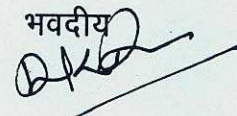 भवदीय